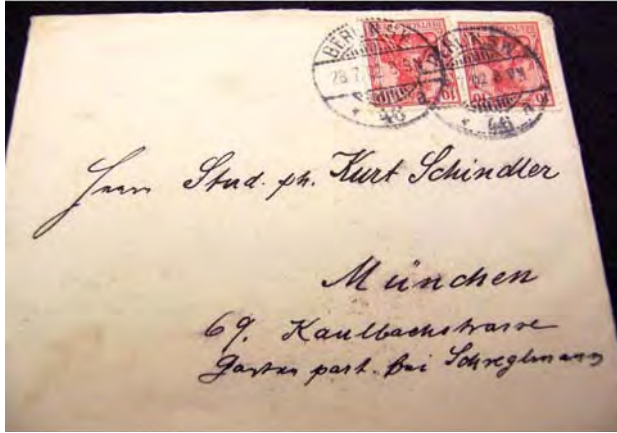 BERLIN S.W.
46
BERLIN S.W.
46
10
10
Herrn Stud. ph. Kurt Schindler
München
69. Kaulbachstrasse
Garten part. bei Schreglmann